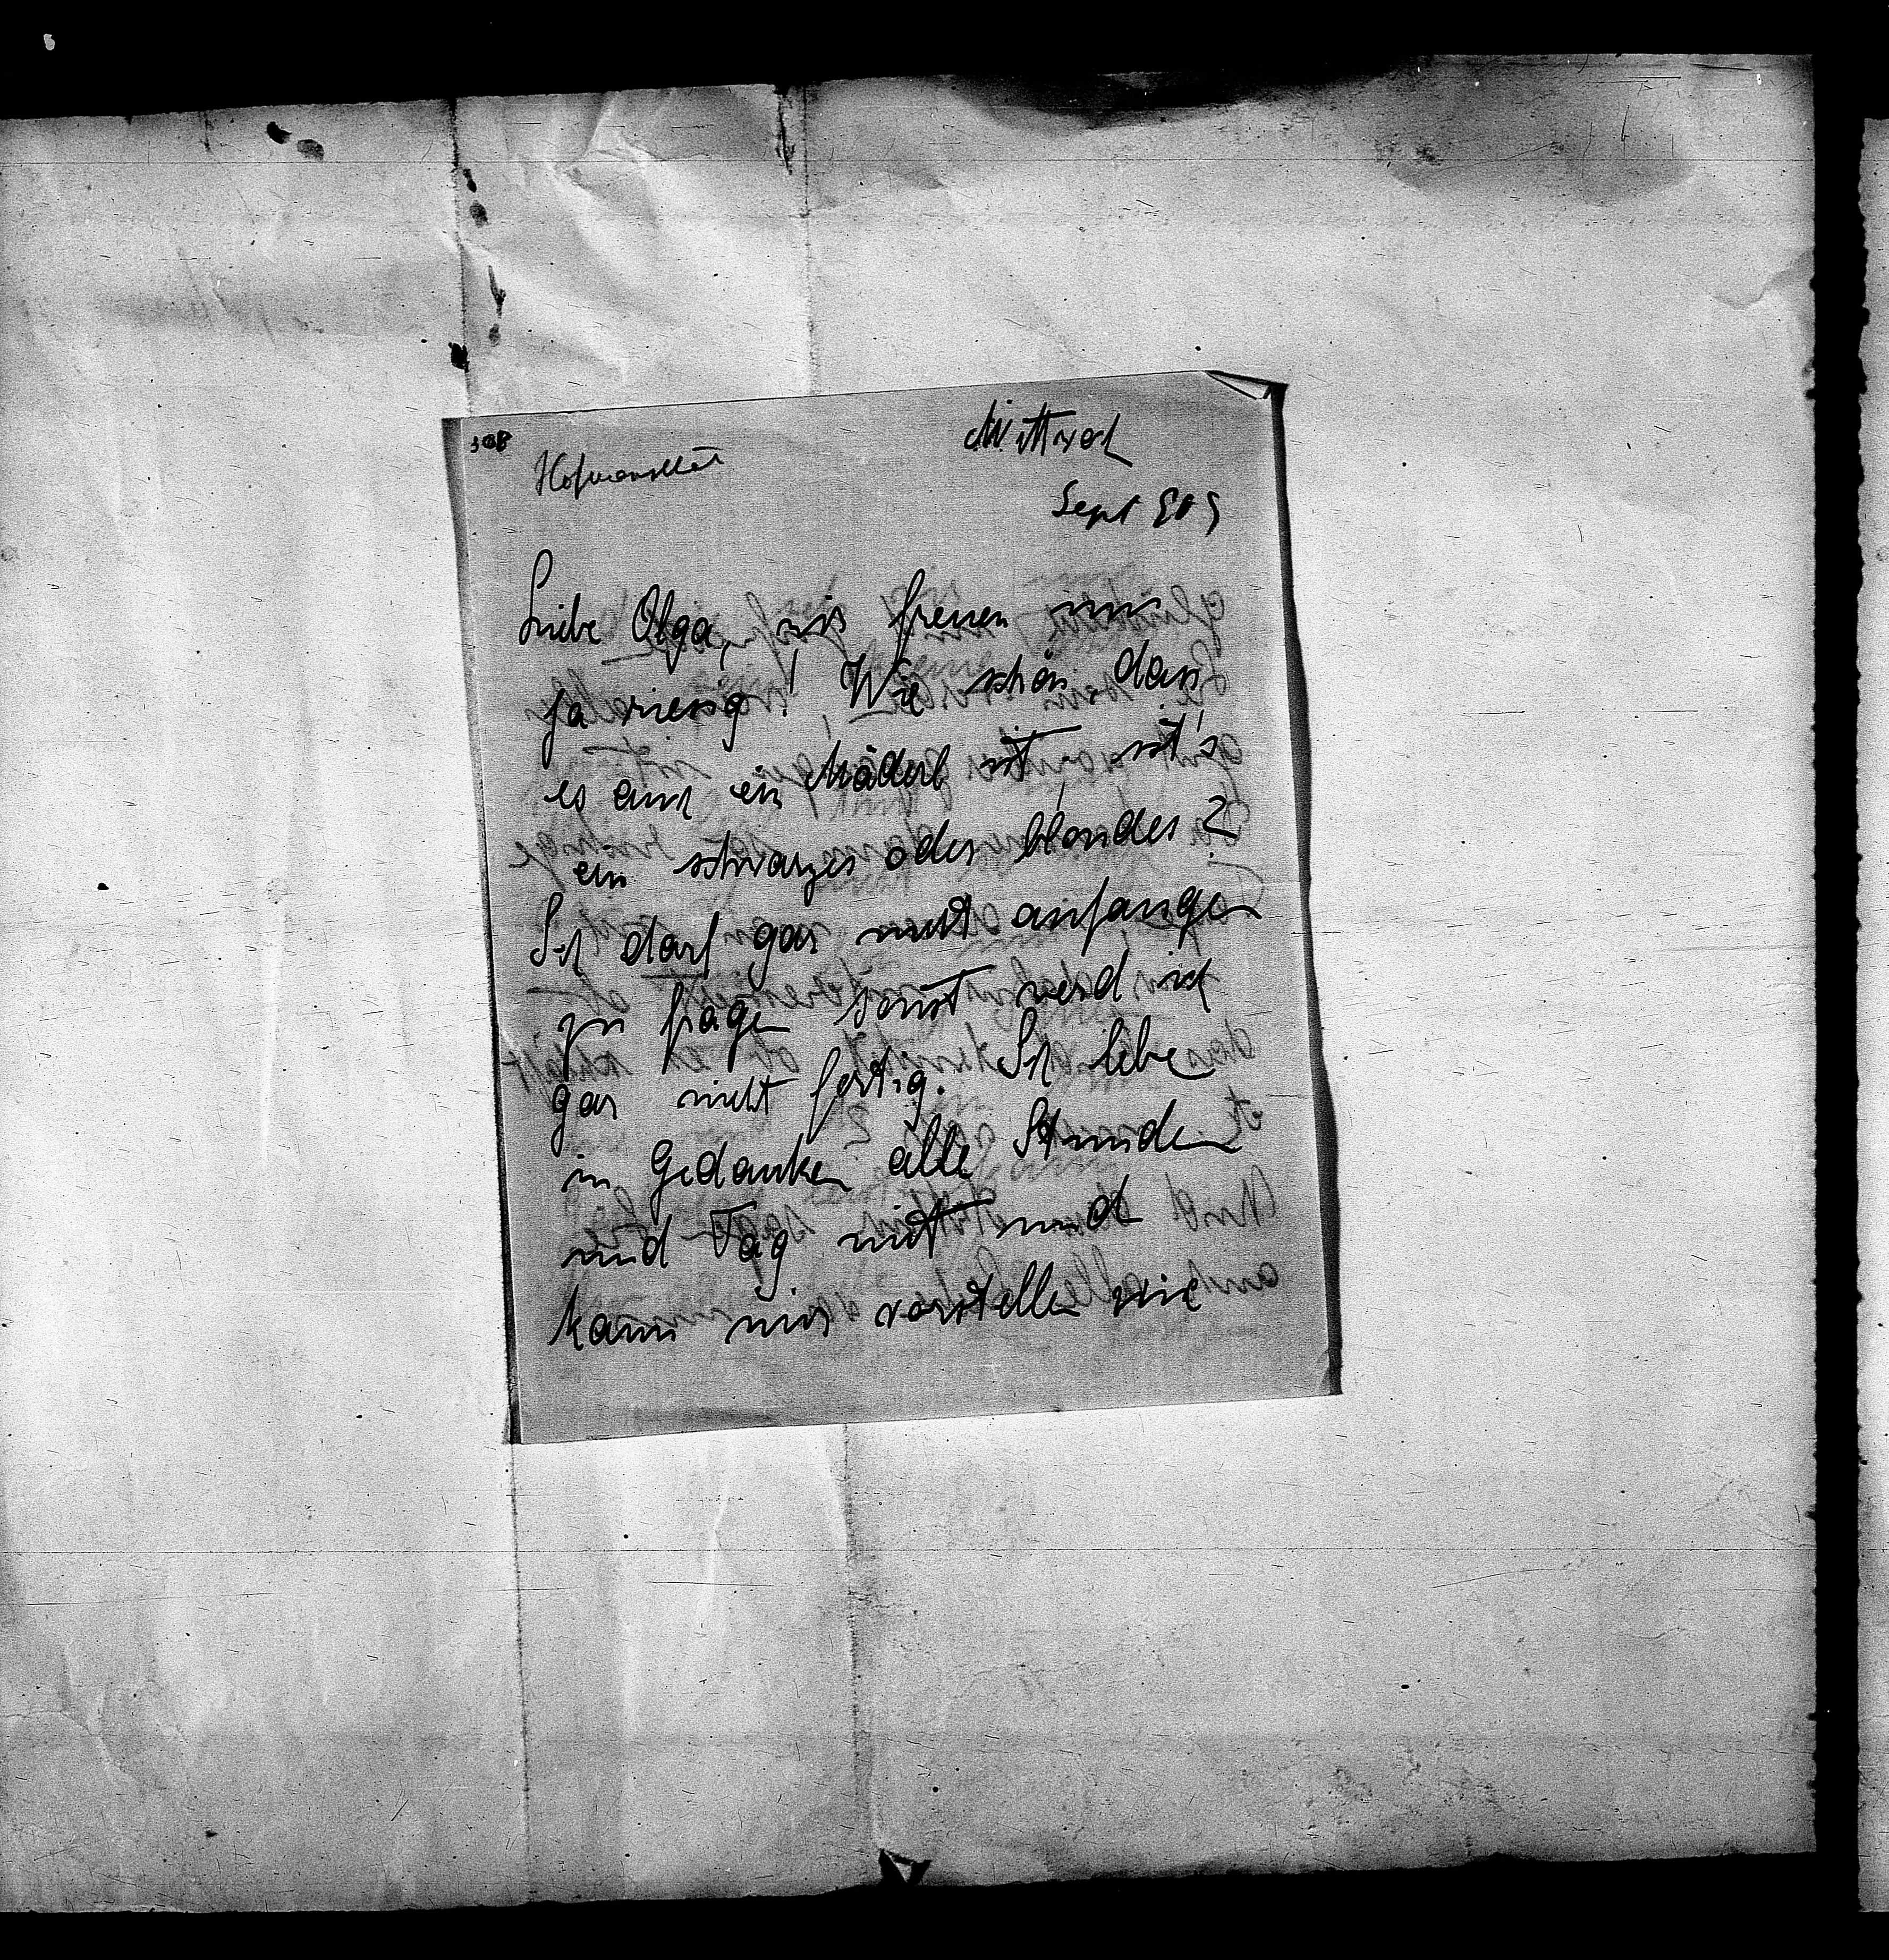 308
Hofmannsthal
Mittwoch
Sept 909
Liebe Olga, wir freuen uns
ja riesig! Wie schön dass
es auch ein Mäderl ist, ist's
ein schwarzes oder blondes?
Ich darf gar nicht anfangen
zu fragen sonst werd ich
gar nicht fertig. Ich lebe
in Gedanken alle Stunden
und Tag mit und
kann mir vorstellen wie